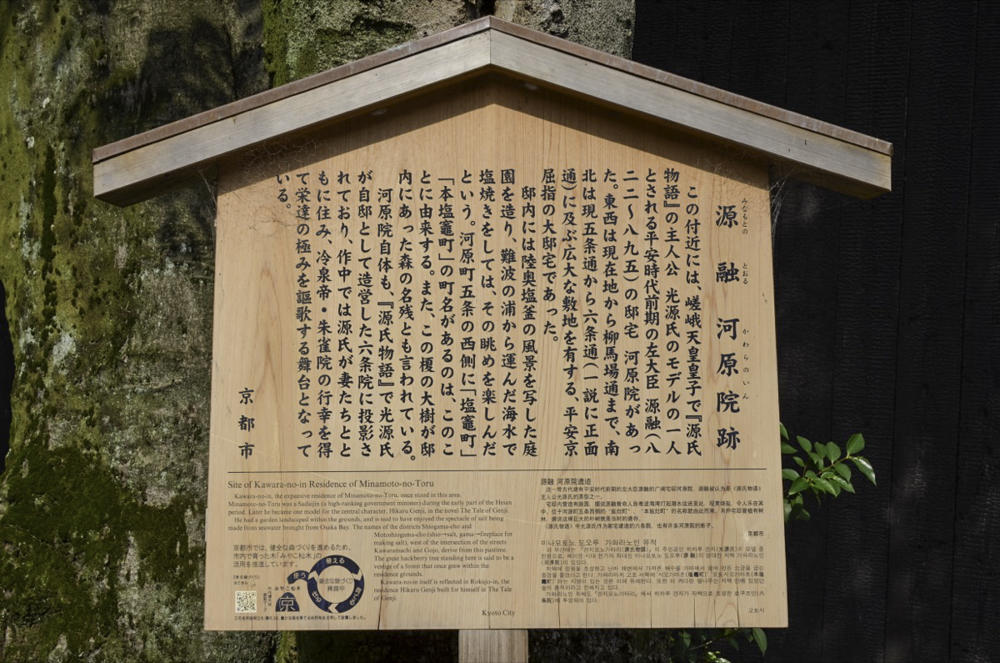 源融 河原院跡
みなもとの とおる かわらのいん
この付近には、嵯峨天皇皇子で『源氏
物語』の主人公 光源氏のモデルの一人
とされる平安時代前期の左大臣 源融(八
二二〜八九五)の邸宅 河原院があっ
た。東西は現在地から柳馬場通まで、南
北は現五条通から六条通(一説に正面
通)に及ぶ広大な敷地を有する、平安京
屈指の大邸宅であった。
邸内には陸奥塩釜の風景を写した庭
園を造り、難波の浦から運んだ海水で
塩焼きをしては、その眺めを楽しんだ
という。河原町五条の西側に「塩竈町」
「本塩竈町」の町名があるのは、このこ
とに由来する。また、この榎の大樹が邸
内にあった森の名残とも言われている。
河原院自体も、『源氏物語』で光源氏
が自邸として造営した六条院に投影さ
れており、作中では源氏が妻たちとと
もに住み、冷泉帝・朱雀院の行幸を得
て栄達の極みを謳歌する舞台となって
いる。
京都市
Site of Kawara-no-in Residence of Minamoto-no-Toru
Kawara-no-in, the expansive residence of Minamoto-no-Toru, once stood in this area.
Minamoto-no-Toru was a Sadaijin (a high-ranking government minister) during the early part of the Heian
period. Later he became one model for the central character, Hikaru Genji, in the novel The Tale of Genji.
He had a garden landscaped within the grounds, and is said to have enjoyed the spectacle of salt being
made from seawater brought from Osaka Bay. The names of the districts Shiogama-cho and
Motoshiogama-cho (shio→salt, gama→fireplace for
making salt), west of the intersection of the streets
Kawaramachi and Gojo, derive from this pastime.
The giant hackberry tree standing here is said to be a
vestige of a forest that once grew within the
residence grounds.
Kawara-no-in itself is reflected in Rokujo-in, the
residence Hikaru Genji built for himself in The Tale
of Genji.
Kyoto City
京都市では、健全な森づくりを進めるため、
市内で育った木「みやこ杣木」の
活用を推進しています。
使う
植える
育てる
健全な森づくり
推進中
京
源融 河原院遗迹
京都市
미나모토노 도오루 가와라노인 유적
교토시